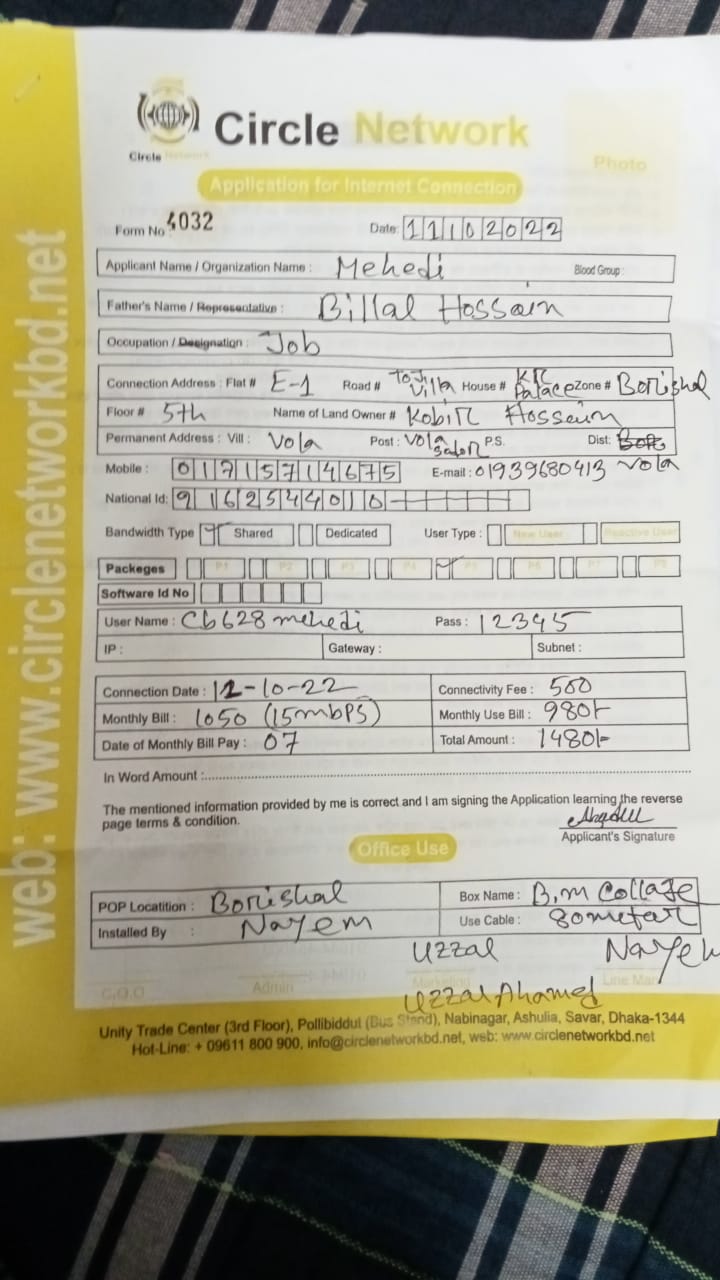 Circle Network
Circle Network
Photo
Application for Internet Connection
Form No 4032
Date: 11102022
Applicant Name / Organization Name : Mehedi Blood Group :
Father's Name / Representative : Billal Hossain
Occupation / Designation : Job
Connection Address : Flat # E-1 Road # Villa House # KR Palace Zone # Borishal
Floor # 5th Name of Land Owner # Kobir Hossain
Permanent Address : Vill : Vola Post : Vola Sador P.S. Dist: Vola
Mobile : 01715714675 E-mail : 01939680413
National Id: 9162544010
Bandwidth Type Shared Dedicated User Type : New User Reactive User
Packeges P1 P2 P3 P4 P5 P6 P7 P8
Software Id No
User Name : Cb628mehedi Pass : 12345
IP : Gateway : Subnet :
Connection Date : 12-10-22 Connectivity Fee : 500
Monthly Bill : 1050 (15mbps) Monthly Use Bill : 980/-
Date of Monthly Bill Pay : 07 Total Amount : 1480/-
In Word Amount :
The mentioned information provided by me is correct and I am signing the Application learning the reverse
page terms & condition.
Applicant's Signature
Office Use
POP Locatition : Borishal Box Name : B.m Collage
Installed By : Nayem Use Cable : 80metar
Uzzal Nayem
C.O.O Admin Marketing Line Man
Uzzal Ahamed
Unity Trade Center (3rd Floor), Pollibiddut (Bus Stand), Nabinagar, Ashulia, Savar, Dhaka-1344
Hot-Line: + 09611 800 900, info@circlenetworkbd.net, web: www.circlenetworkbd.net
web: www.circlenetworkbd.net